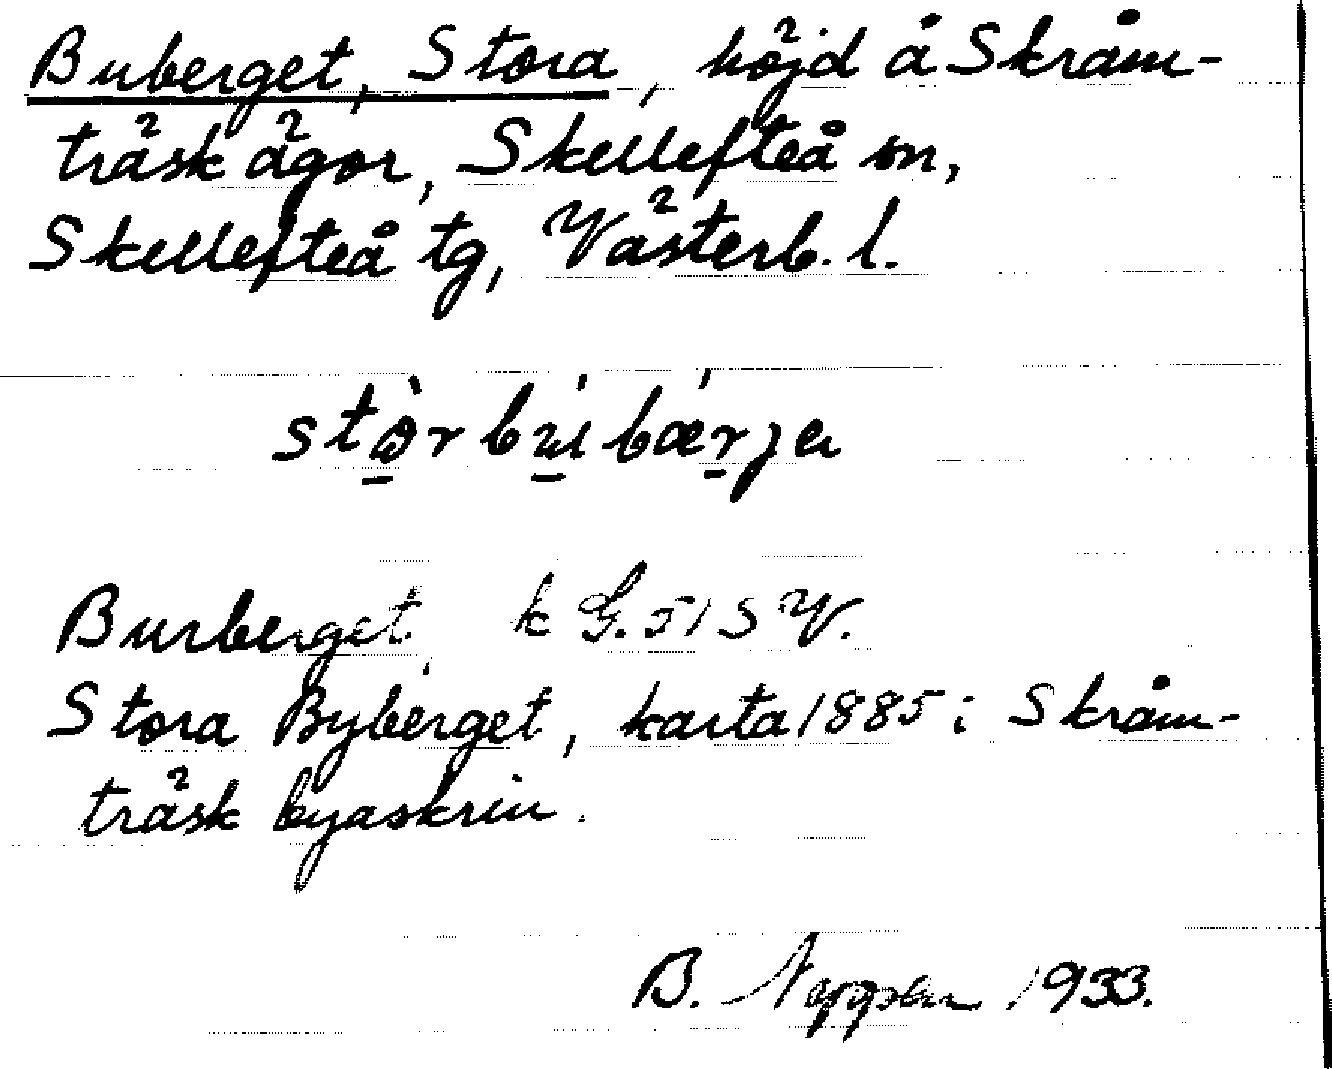 Buberget, Stora, höjd å Skråm-
träsk ägor, Skellefteå sn,
Skellefteå tg, Västerb. l.
stòrbúbǽrja
Burberget, k G. 51 S V.
Stora Byberget, karta 1885 i Skråm-
träsk byaskrin.
B. 1933.